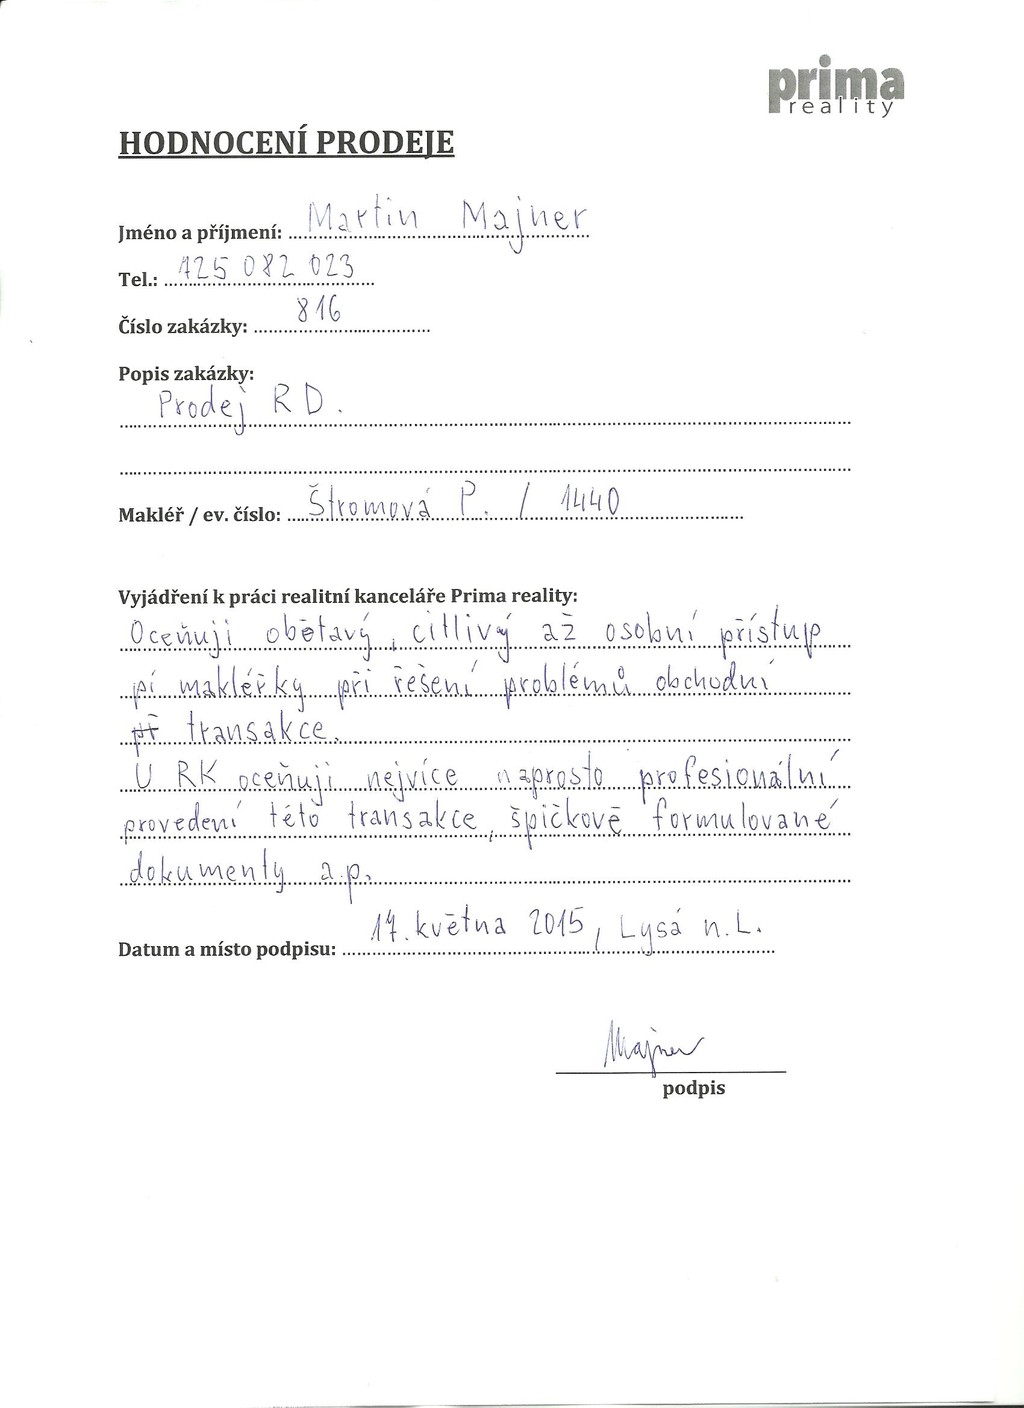 prima
reality
HODNOCENÍ PRODEJE
Jméno a příjmení: Martin Majner
Tel.: 725 082 023
Číslo zakázky: 816
Popis zakázky:
Prodej RD.
Makléř / ev. číslo: Štromová P. / 1440
Vyjádření k práci realitní kanceláře Prima reality:
Oceňuji obětavý, citlivý až osobní přístup
pí makléřky při řešení problémů obchodní
př transakce.
U RK oceňuji nejvíce naprosto profesionální
provedení této transakce, špičkově formulované
dokumenty a.p.
Datum a místo podpisu: 17. května 2015, Lysá n.L.
Majner
podpis